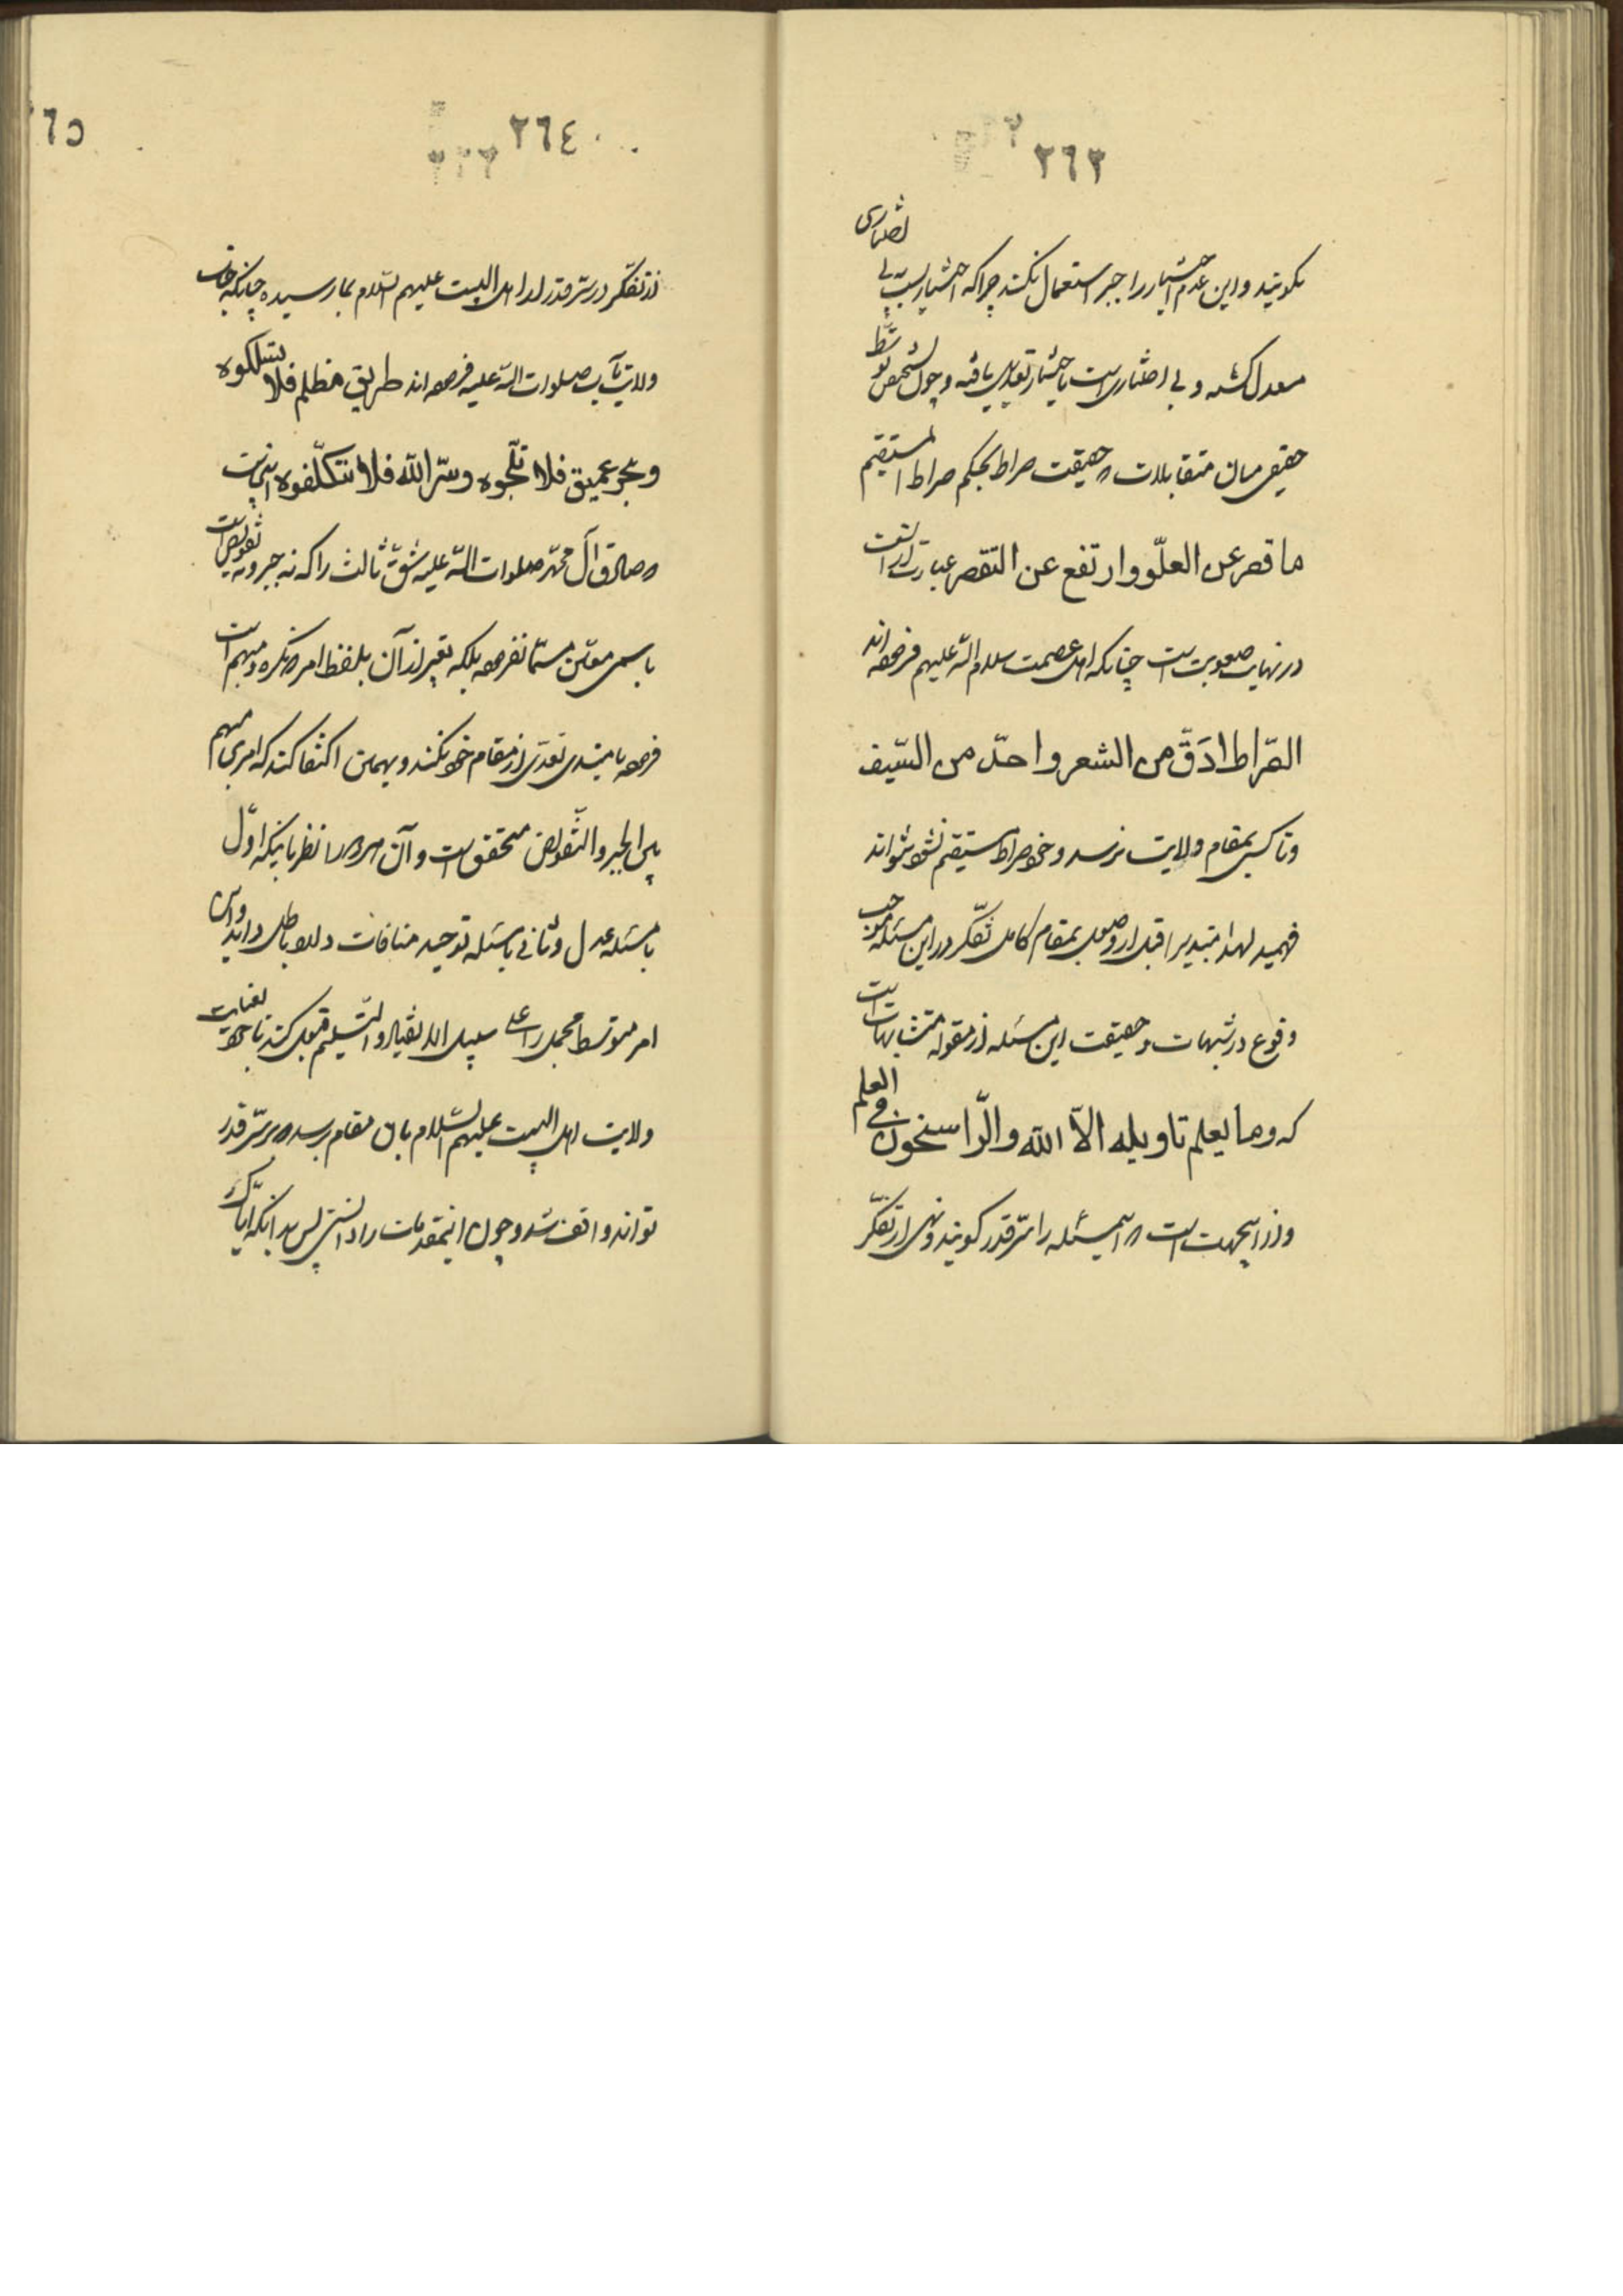 ٢٦٣
بکویند و این عدم اختیار را جبر استعمال نکنند چراکه اختیار بسبب بی اختیاری
معدل کشته و بی اختیاری است باختیار تعدیل یافته و چون تشخیص توسط
حقیقی میان متقابلات در حقیقت صراط بحکم صراط المستقیم
ما قصر عن العلّو وارتفع عن التقصر عبارت از آنست
در نهایت صعوبت است چنانکه اهل عصمت سلام اللّه علیهم فرموده اند
الصّراط ادَقّ من الشعر واحدّ من السّیف
و تا کسی بمقام ولایت نرسد و خود صراط مستقیم نشود نتواند
فهمید لهذا مبتدیرا قبل از وصول بمقام کامل تفکّر در این مسئله موجب
وقوع در شبهات و حقیقت این مسئله از مقوله متشابهات است
که وما یعلم تاویله الاّ اللّه والرّاسخون فی العلم
و از اینجهت است که اینمسئله را سرّ قدر کویند و نهی از تفکّر
٢٦٤
از تفکّر در سرّ قدر از اهل البیت علیهم السّلام بما رسیده چنانکه جناب
ولایت مآب صلوات اللّه علیه فرموده اند طریق مظلم فلا تسلکوه
وبحر عمیق فلا تلّجوه وسرّ اللّه فلا تتکلّفوه
صادق آل محمّد صلوات اللّه علیه شقّ ثالث را که نه جبر و نه تفویض است
باسمی معیّن مسمّا نفرموده بلکه تعبیر از آن بلفظ امر که نکره و مبهم است
فرموده تا مبتدی تعدّی از مقام خود نکند و بهمین اکتفا کند که امری مبهم
بین الجبر والتّفویض متحقق است و آن هر دو را نظر باینکه اوّل
با مسئله عدل و ثانی با مسئله توحید منافات دارد باطل داند و این
امر متوسط مجمل را علی سبیل الانقیاد والتّسلیم قبول کند تا چون بعنایت
ولایت اهل البیت علیهم السّلام بآن مقام رسد که بر سرّ قدر
تواند واقف شد و چون اینمقدمات را دانستی پس بدانکه
٢٦٥